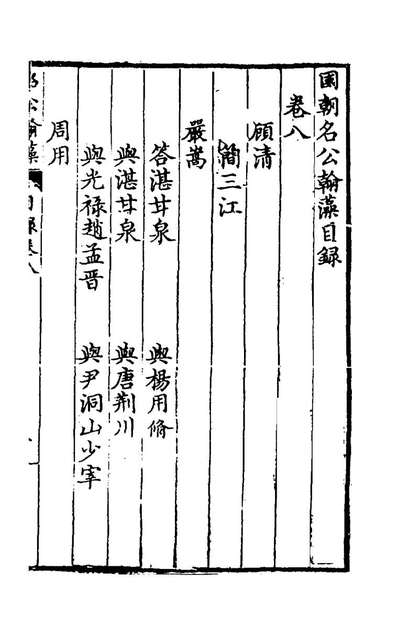 國朝名公翰藻目録
卷八
顧清
簡三江
嚴嵩
答湛甘泉
與楊用脩
與湛甘泉
與唐荆川
與光禄趙孟晋
與尹洞山少宰
周用
名公翰藻
目録卷八